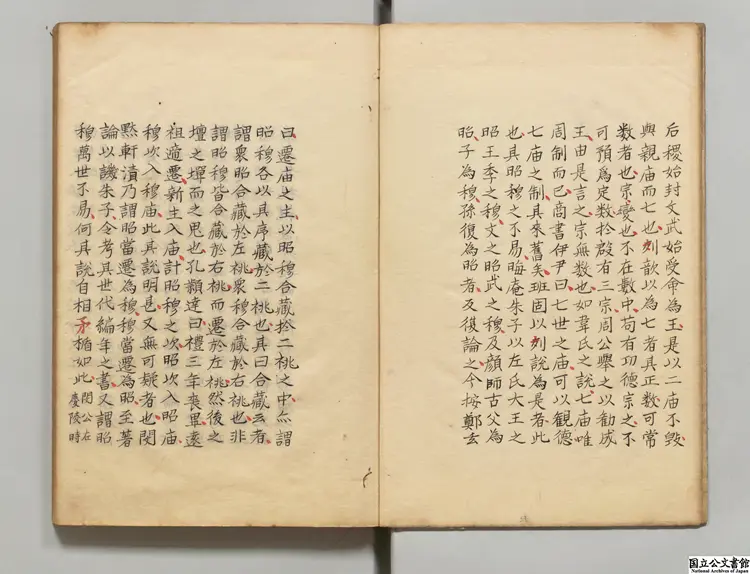 后稷始封文武始受命為王是以二庙不毁
與親庙而七也刘歆以為七者其正数可常
数者也宗変也不在数中苟有功德宗之不
可預為定数於殷有三宗周公舉之以勧成
王由是言之宗無数也如韋氏之說七庙唯
周制而已商書伊尹曰七世之庙可以観德
七庙之制其來舊矣班固以刘說為是者此
也其昭穆之不易晦庵朱子以左氏大王之
昭王季之穆文之昭武之穆及顔師古父為
昭子為穆孫復為昭者反復論之今按鄭玄
曰遷庙之主以昭穆合藏於二桃之中亦謂
昭穆各以其序藏於二桃也其曰合藏云者
謂衆昭合藏於左桃衆穆合藏於右桃也非
謂昭穆皆合藏於右桃而遷於左桃然後之
壇之墠而之鬼也孔頴達曰禮三年喪畢遠
祖遞遷新主入庙計昭穆之次昭次入昭庙
穆次入穆庙此其說明甚又無可疑者也閔
㸃軒漬乃謂昭當遷為穆穆當遷為昭至著
論以譏朱子令考其世代編年之書又謂昭
穆萬世不易何其說自相矛楯如此閔公在慶陵時
国立公文書館
National Archives of Japan